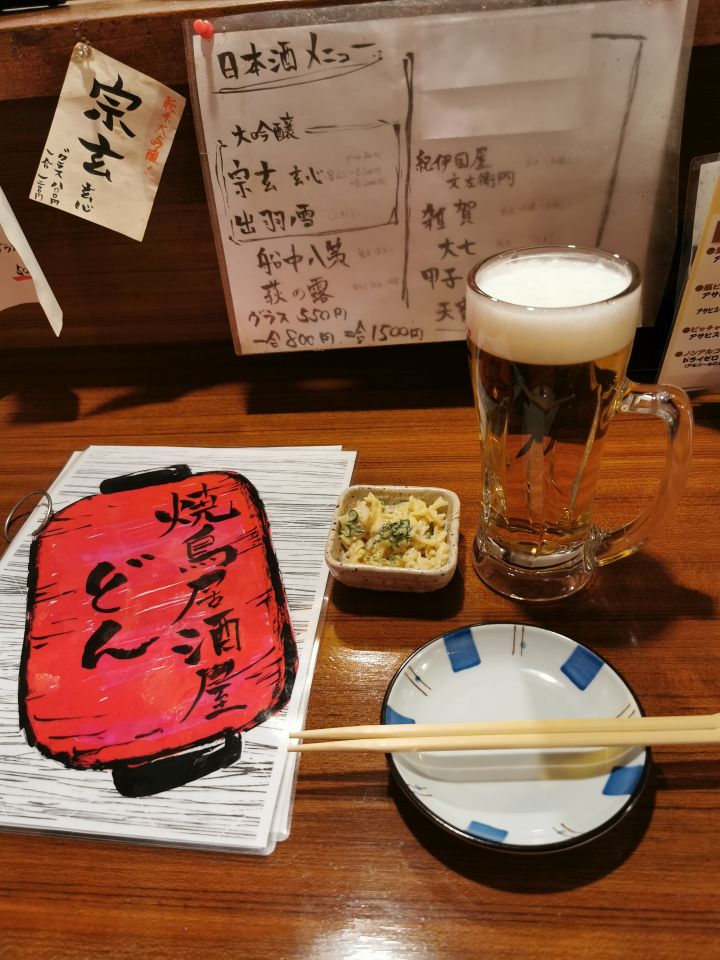 純米大吟醸!
宗玄
玄心
グラス 八〇〇円
日本酒メニュー
大吟醸
宗玄 玄心
出羽ノ雪
船中八策
荻の露
グラス 550円
一合800円 二合1500円
紀伊国屋
文左衛門
雑賀
大七
甲子
天
焼鳥居酒屋
どん
アサヒス
●ピッチャ
アサヒス
●ノンアルコ
ドライゼロ